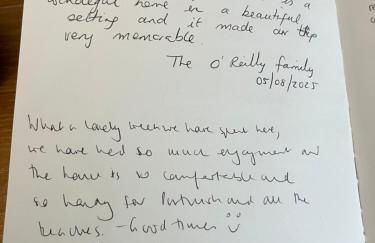 wonderful home in a beautiful
setting and it made our trip
very memorable.
The O'Reilly family
05/08/2025
What a lovely week we have spent here,
we have had so much enjoyment and
the house is so comfortable and
so handy for Portrush and all the
beaches. - Good times